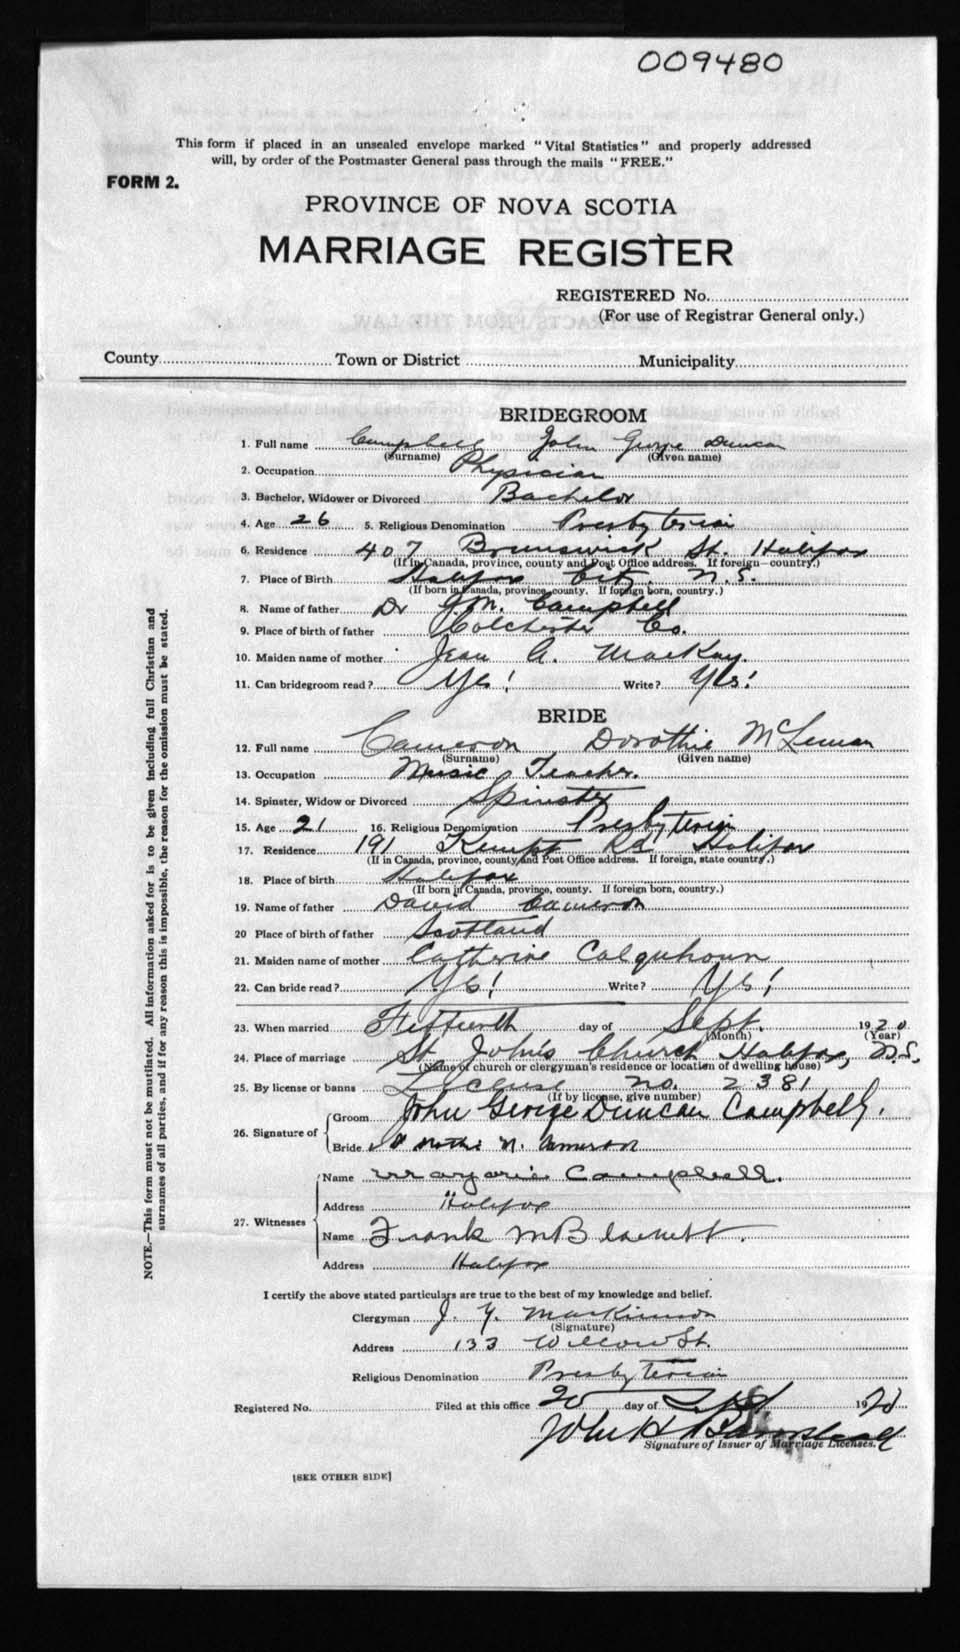 009480
This form if placed in an unsealed envelope marked "Vital Statistics" and properly addressed
will, by order of the Postmaster General pass through the mails "FREE."
FORM 2.
PROVINCE OF NOVA SCOTIA
MARRIAGE REGISTER
REGISTERED No.
(For use of Registrar General only.)
County Town or District Municipality
BRIDEGROOM
1. Full name Campbell John George Duncan
(Surname) (Given name)
2. Occupation Physician
3. Bachelor, Widower or Divorced Bachelor
4. Age 26 5. Religious Denomination Presbyterian
6. Residence 407 Brunswick St. Halifax
(If in Canada, province, county and Post Office address. If foreign—country.)
7. Place of Birth Halifax City. N.S.
(If born in Canada, province, county. If foreign born, country.)
8. Name of father Dr J.M. Campbell
9. Place of birth of father Colchester Co.
10. Maiden name of mother Jean A. MacKay.
11. Can bridegroom read? Yes! Write? Yes!
BRIDE
12. Full name Cameron Dorothie McLennan
(Surname) (Given name)
13. Occupation Music Teacher.
14. Spinster, Widow or Divorced Spinster
15. Age 21 16. Religious Denomination Presbyterian
17. Residence 191 Kempt Rd Halifax
(If in Canada, province, county and Post Office address. If foreign, state country.)
18. Place of birth Halifax
(If born in Canada, province, county. If foreign born, country.)
19. Name of father David Cameron
20 Place of birth of father Scotland
21. Maiden name of mother Catherine Colquhoun
22. Can bride read? Yes! Write? Yes!
23. When married Fifteenth day of Sept. 1920
(Month) (Year)
24. Place of marriage St. John's Church Halifax, N.S.
(Name of church or clergyman's residence or location of dwelling house)
25. By license or banns License no. 2381
(If by license, give number)
26. Signature of Groom John George Duncan Campbell.
Bride N. Cameron
27. Witnesses Name Marjorie Campbell.
Address Halifax
Name Frank M
Address Halifax
I certify the above stated particulars are true to the best of my knowledge and belief.
Clergyman J. Y. MacKinnon
(Signature)
Address 133 Willow St.
Religious Denomination Presbyterian
Registered No. Filed at this office 20 day of Sept 1920
John H Barnstead
Signature of Issuer of Marriage Licenses.
[SEE OTHER SIDE]
NOTE.—This form must not be mutilated. All information asked for is to be given including full Christian and
surnames of all parties, and if for any reason this is impossible, the reason for the omission must be stated.